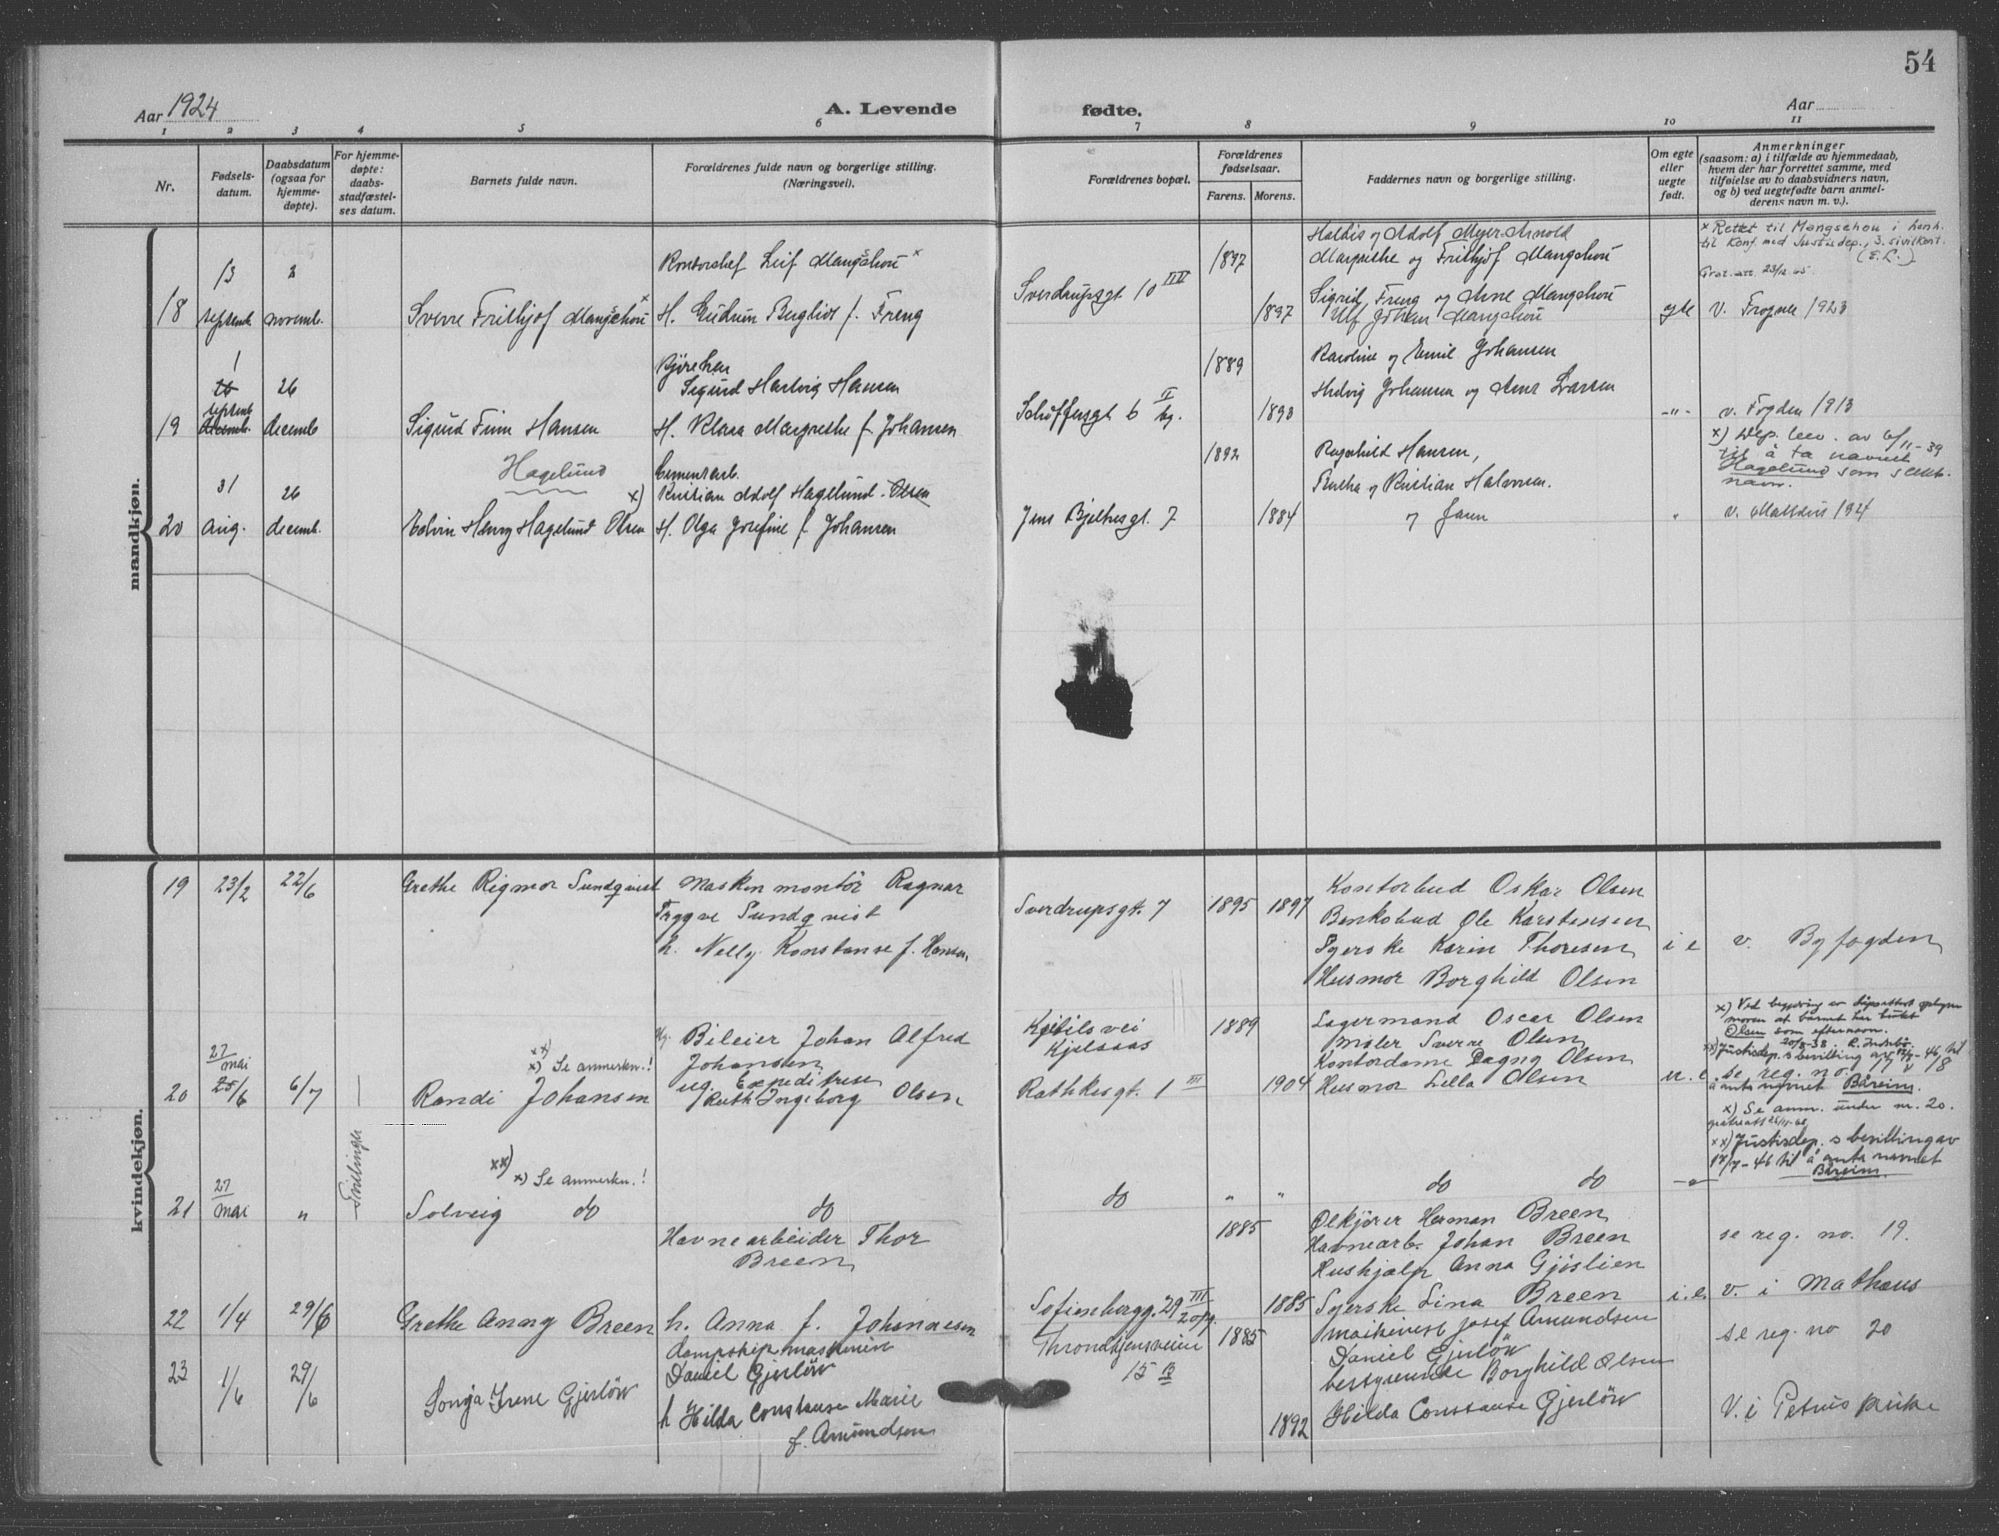 54
Aar 1924
A. Levende
fødte.
Aar
1 2 3 4 5 6 7 8 9 10 11
Nr.
Fødsels-
datum.
Daabsdatum
(ogsaa for
hjemme-
døpte).
For hjemme-
døpte:
daabs-
stadfæstel-
ses datum.
Barnets fulde navn.
Forældrenes fulde navn og borgerlige stilling.
(Næringsvei).
Forældrenes bopæl.
Forældrenes
fødselsaar.
Farens. Morens.
Faddernes navn og borgerlige stilling.
Om egte
eller
uegte
født.
Anmerkninger
(saasom: a) i tilfælde av hjemmedaab,
hvem der har forrettet samme, med
tilføielse av to daabsvidners navn,
og b) ved uegtefødte barn anmel-
derens navn m. v.).
mandkjøn.
18
13
septemb.
2
novemb.
Sverre Frithjof Mangschou x
Kontorchef Leif Mangschou x
H. Gudrun Bergliot f. Freng
Sverdrupsgt 10 III
1897
1897
Haldis og Adolf Meyer-Arnold
Margrethe og Frithjof Mangschou
Sigrid Freng og Arne Mangschou
Ulf Johan Mangschou
egte
x Rettet til Mangschou i henh.
til Konf. med Justisdep., 3. sivilkont.
(E.L.)
V. Frogner 1923
19
1
septemb
decemb.
26
decemb
Sigurd Finn Hansen
Sigurd Hartvig Hansen
H. Klara Margrethe f. Johansen
Schoffersgt 6 II
1889
1893
Karoline og Emil Johansen
Hedvig Johansen og Arne Larsen
-"-
v. Fogden 1913
20
31
aug.
26
decemb.
Hagelund
Edvin Henry Hagelund Olsen
Cementarb.
x) Kristian Adolf Hagelund Olsen
H. Olga Josefine f. Johansen
Jens Bjelkesgt. 7
1892
1884
Ragnhild Hansen,
Bertha og Kristian Halvorsen.
"
x) Dep. bev. av 6/11-39
til å ta navnet
Hagelund som slekts-
navn.
kvindekjøn.
19
23/2
22/6
Grethe Rigmor Sundqvist
Maskinmontör Ragnar
Trygve Sundqvist
h. Nelly Konstanse f. Hansen
Sverdrupsgt. 7
1895
1897
Kontorbud Oskar Olsen
Bankobud Ole Karstensen
Syerske Karin Thoresen
Husmor Borghild Olsen
i e
v. Byfogden
20
27
mai
25/6
6/7
xx)
x) Se anmerkn.!
Randi Johansen
Bileier Johan Alfred
Johansen
ug. Expeditrise
Ruth Ingeborg Olsen
Kjelsaas
Rathkesgt. 1 III
1889
1904
Lagermand Oscar Olsen
Maler Sverre Olsen
Kontordame Dagny Olsen
Husmor Lilla Olsen
u. e.
moren at barnet har
Olsen som efternavn.
xx) Justisdep.s bevilling av 17/7-46 til
se reg. no. 17 v/8
å anta navnet Båreim.
Tvillinger
21
27
mai
"
xx)
x) Se anmerkn.!
Solveig do
do
do
" "
do do
x) Se anm. under nr. 20.
xx) Justisdep.s bevilling av
17/7-46 til å anta navnet
Båreim.
22
1/4
29/6
Grethe Anny Breen
Havnearbeider Thor
Breen
h. Anna f. Johannesen
Sofienbergg. 29 III
1885
1885
Ølkjører Herman Breen
Havnearb. Johan Breen
Hushjælp Anna Gjöslien
Syerske Lina Breen
i. e.
se reg. no. 19.
v. i Mathæus
23
1/6
29/6
Sonja Irene Gjerlöw
Daniel Gjerlöw
h Hilda Constanse Marie
f. Amundsen
Throndhjemsveien
15 B
1885
1892
maskinist Josef Amundsen
Daniel Gjerlöw
bestyrerinde Borghild Olsen
Hilda Constanse Gjerlöw
se reg. no 20
V. i Petrus kirke